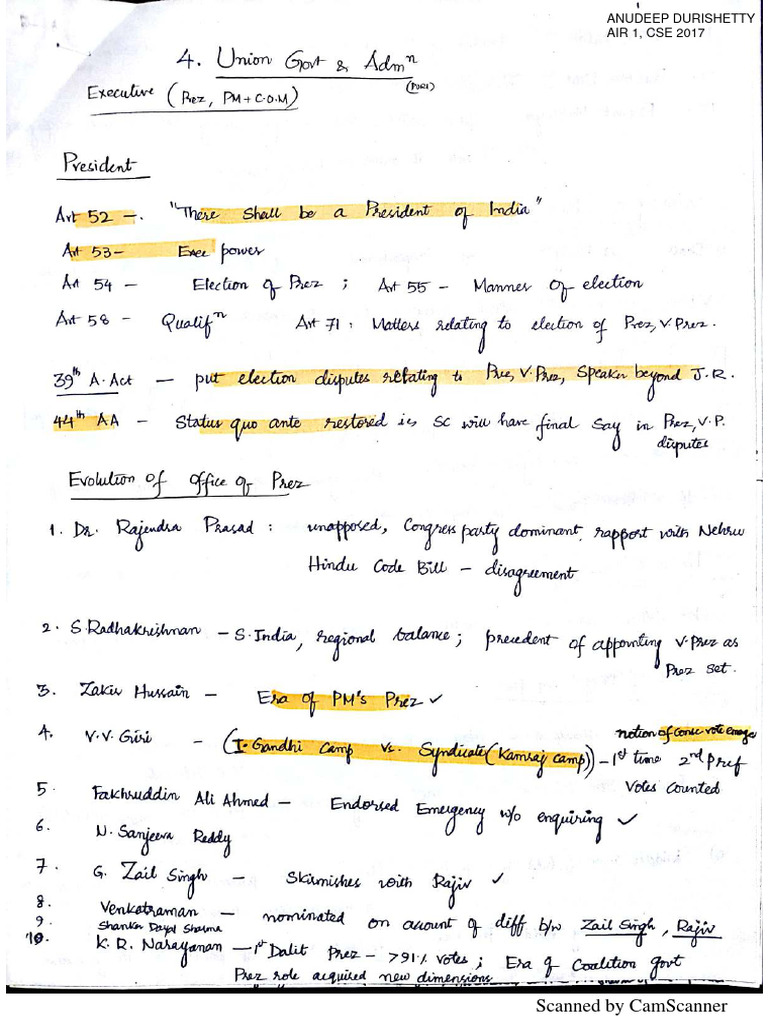 ANUDEEP DURISHETTY
AIR 1, CSE 2017
4. Union Govt & Admn
(PURI)
Executive (Prez, PM + C.O.M)
President
Art 52 –. "There shall be a President of India"
Art 53 – Exec power
Art 54 – Election of Prez ; Art 55 – Manner of election
Art 58 – Qualifn Art 71 : Matters relating to election of Prez, V.Prez.
39th A.Act – put election disputes relating to Pre, V.Prez, Speaker beyond J.R.
44th AA – Status quo ante restored is SC will have final say in Prez, V.P. disputes
Evolution of office of Prez
1. Dr. Rajendra Prasad : unapposed, Congress party dominant, rapport with Nehru
Hindu Code Bill – disagreement
2. S.Radhakrishnan – S.India, regional balance ; precedent of appointing V.Prez as
Prez set.
3. Zakir Hussain – Era of PM's Prez ✓
4. V.V.Giri – (I.Gandhi Camp vs. Syndicate (Kamraj camp)) – 1st time 2nd pref
notion of consc vote
Votes Counted
5. Fakhruddin Ali Ahmed – Endorsed Emergency w/o enquiring ✓
6. N. Sanjeeva Reddy
7. G. Zail Singh – Skirmishes with Rajiv ✓
8. Venkatraman – nominated on account of diff b/w Zail Singh, Rajiv
9. Shankar Dayal Sharma
10. K.R. Narayanan – 1st Dalit Prez – >91% votes ; Era of Coalition govt
Prez role acquired new dimensions
Scanned by CamScanner